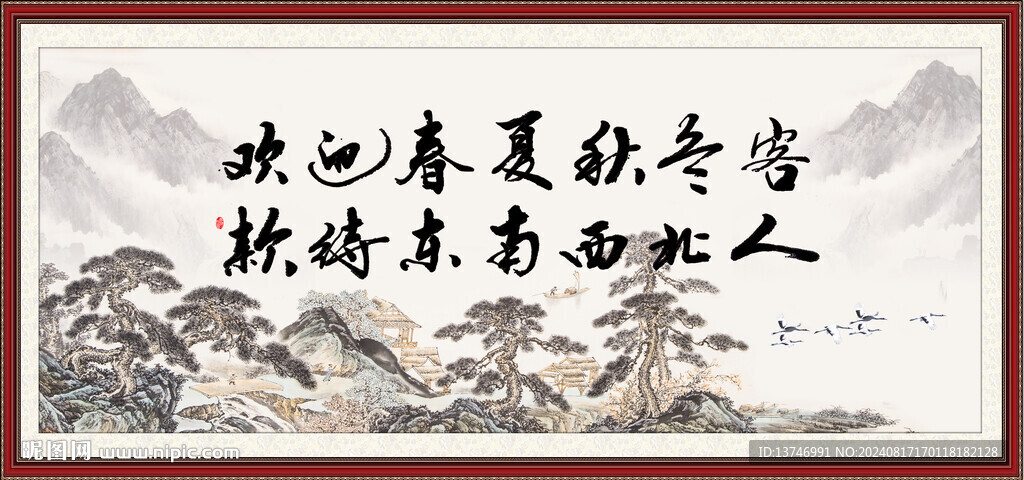 欢迎春夏秋冬客
款待东南西北人
昵图网 www.nipic.com
ID:13746991 NO:20240817170118182128